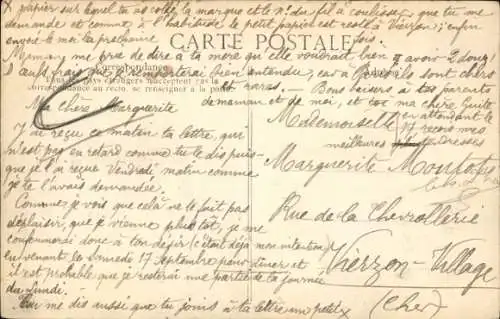 papier sur lequel tu as collé la marque et le No du fil à coulisser que tu me
demande et comme à l'habitude le petit papier est resté à Vierzon; enfin
envoie le moi la prochaine fois.
CARTE POSTALE
Maman me prie de dire à ta mère qu'elle voudrait bien avoir 2 douz
d'œufs frais qui te remboursera bien entendu, car à ils sont chers
et rares. — Bons baisers à tes parents
de maman et de moi, et toi ma chère Guite
en attendant le
17 reçois mes
meilleures tendresses
Correspondance
Tous les pays étrangers n'acceptent pas la
correspondance au recto, se renseigner à la poste
Ma chère Marguerite
J'ai reçu ce matin ta lettre, qui
n'est pas en retard comme tu le dis puis-
que je l'ai reçue Vendredi matin comme
je te l'avais demandée.
Comme je vois que celà ne te fait pas
déplaisir, que je vienne plus tôt, je me
conformerai donc à ton désir (c'était déjà mon intention)
en venant le Samedi 17 Septembre pour dîner et
il est probable que je resterai une partie de la journée
du Lundi. —
Tu me dis aussi que tu joins à ta lettre un petit
Mademoiselle
Marguerite
Rue de la Chevrollerie
Vierzon-Village
(Cher)